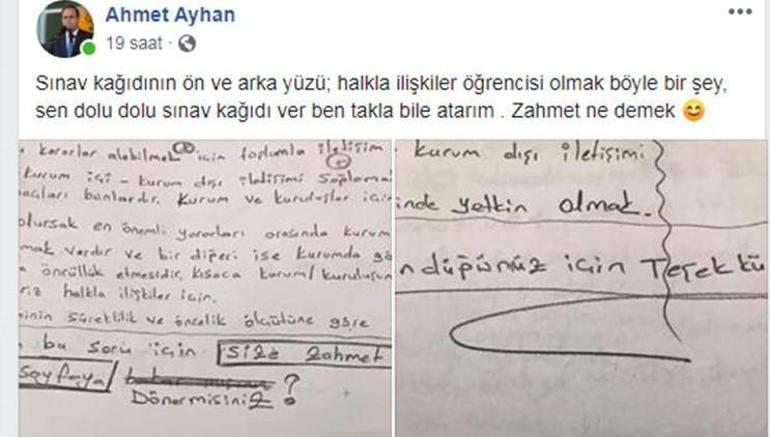 Ahmet Ayhan
19 saat ·
Sınav kağıdının ön ve arka yüzü; halkla ilişkiler öğrencisi olmak böyle bir şey,
sen dolu dolu sınav kağıdı ver ben takla bile atarım . Zahmet ne demek 😊
kararlar alabilmek için toplumla iletişim
kurum içi - kurum dışı iletişimi sağlama
açları bunlardır. Kurum ve kuruluşlar için
olursak en önemli yararları arasında kurum
mak vardır ve bir diğeri ise kurumda gö
öncüllük etmesidir. Kısaca kurum/kuruluşun
riz halkla ilişkiler için.
inin süreklilik ve öncelik ölçütüne göre
bu soru için Size Zahmet
sayfaya/ ?
Dönermisiniz
kurum dışı iletişimi
inde yetkin olmak.
ndüğünüz için Teşekkü